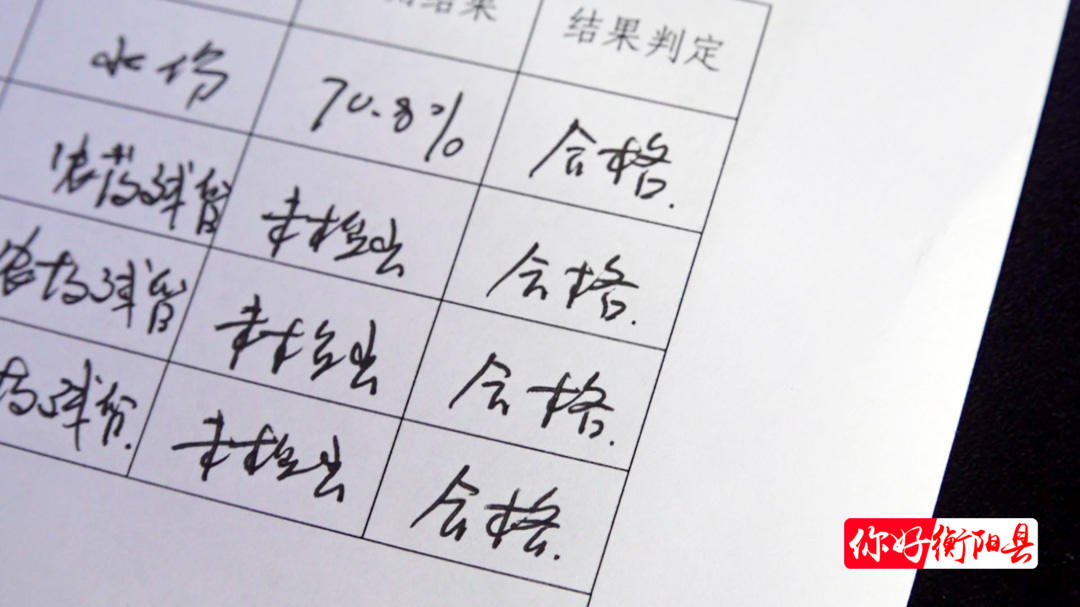 结果 结果判定
水份 70.8% 合格.
农药残留 未检出 合格.
农药残留 未检出 合格.
药残留. 未检出 合格.
你好衡阳县